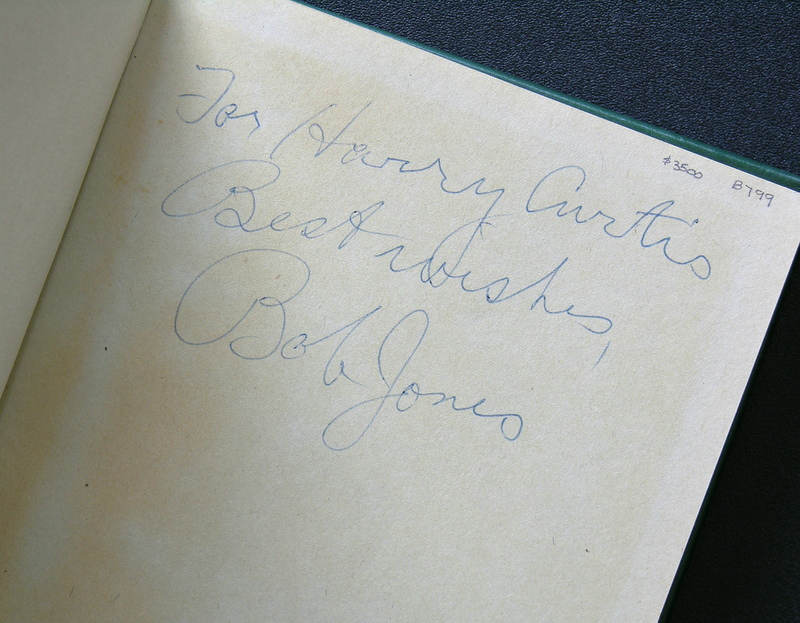 For Harry Curtis
Best wishes,
Bob Jones
$3500 B799